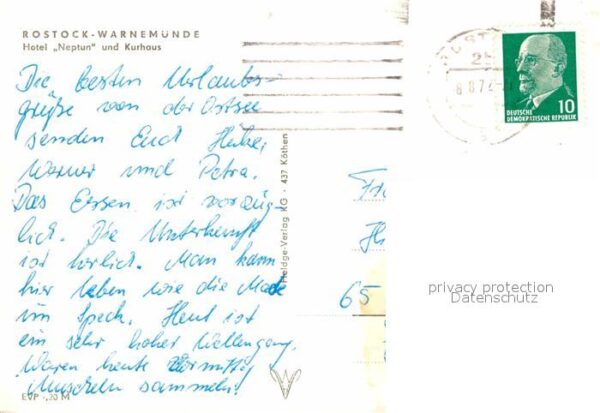 ROSTOCK-WARNEMÜNDE
Hotel „Neptun" und Kurhaus
Die besten Urlaubs-
grüße von der Ostsee
senden Euch Heike,
Werner und Petra.
Das Essen ist vorzüg-
lich. Die Unterkunft
ist herlich. Man kann
hier leben wie die Made
im Speck. Heut ist
ein sehr hoher Wellengang.
Waren heute Vormittag
Muscheln sammeln!
EVP -,20 M
Heldge-Verlag KG · 437 Köthen
10
DEUTSCHE
DEMOKRATISCHE REPUBLIK
65
privacy protection
Datenschutz